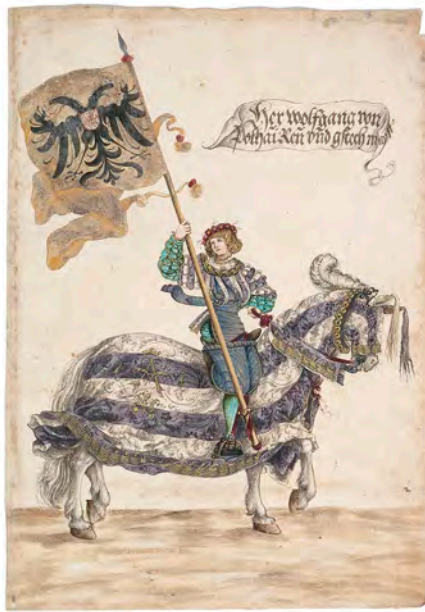 Her wolfgang von
Polhai Ren vnd gstech